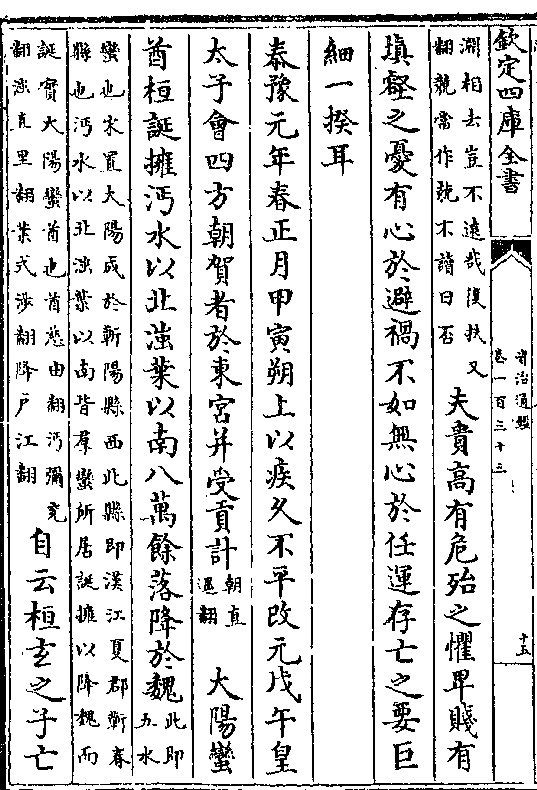 欽定四庫全書
資治通鑑
卷一百三十三
十五
淵相去豈不遠哉復扶又
翻兢當作競不讀曰否
夫貴高有危殆之懼卑賤有
填壑之憂有心於避禍不如無心於任運存亡之要巨
細一揆耳
泰豫元年春正月甲寅朔上以疾久不平改元戊午皇
太子會四方朝賀者於東宮并受貢計
朝直
遥翻
大陽蠻
酋桓誕擁沔水以北滍葉以南八萬餘落降於魏
此即
五水
蠻也宋置大陽戍於蘄陽縣西北縣即漢江夏郡蘄春
縣也沔水以北滍葉以南皆羣蠻所居誕擁以降魏而
誕實大陽蠻酋也酋慈由翻沔彌兖
翻滍直里翻葉式涉翻降户江翻
自云桓玄之子亡